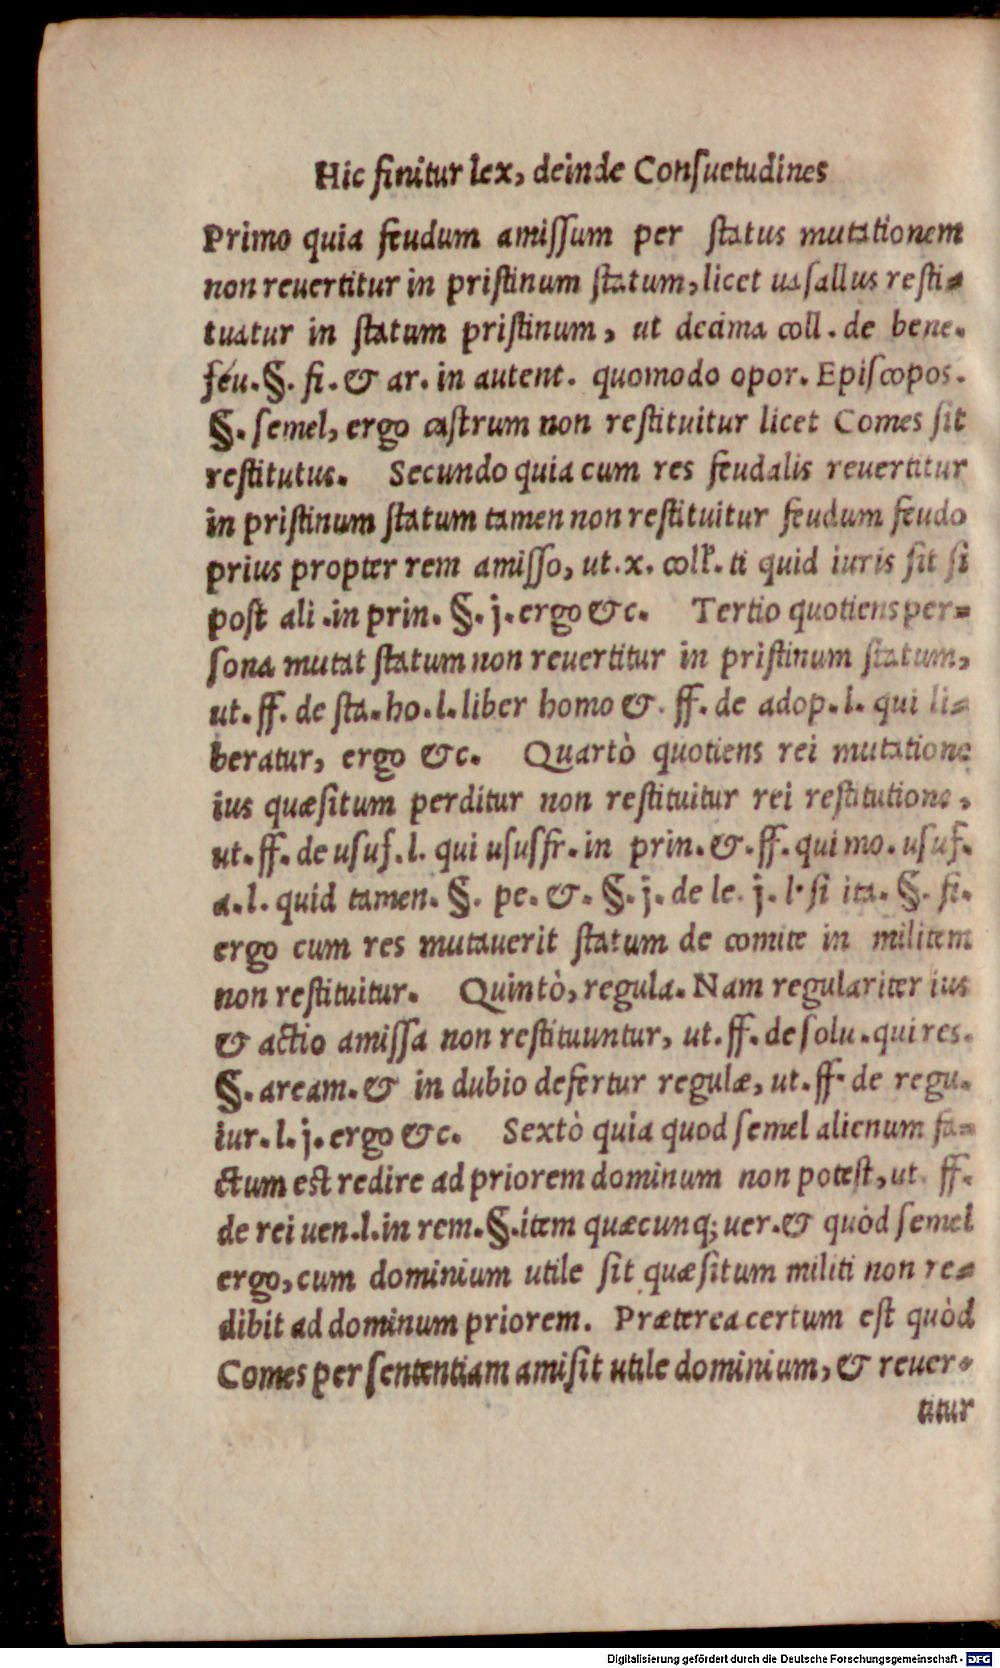 Hic finitur lex, deinde Consuetudines
Primo quia feudum amiſſum per ſtatus mutationem
non reuertitur in priſtinum ſtatum, licet uaſallus reſti-
tuatur in ſtatum priſtinum, ut decima coll. de bene.
féu. §. fi. & ar. in autent. quomodo opor. Epiſcopos.
§. ſemel, ergo caſtrum non reſtituitur licet Comes ſit
reſtitutus. Secundo quia cum res feudalis reuertitur
in priſtinum ſtatum tamen non reſtituitur feudum feudo
prius propter rem amiſſo, ut. x. coll. ti quid iuris ſit ſi
poſt ali. in prin. §. j. ergo &c. Tertio quotiens per-
ſona mutat ſtatum non reuertitur in priſtinum ſtatum,
ut. ff. de ſta. ho. l. liber homo &. ff. de adop. l. qui li-
beratur, ergo &c. Quartò quotiens rei mutatione
ius quæſitum perditur non reſtituitur rei reſtitutione,
ut. ff. de uſuf. l. qui uſusfr. in prin. &. ff. qui mo. uſuf.
a. l. quid tamen. §. pe. &. §. j. de le. j. l. ſi ita. §. fi.
ergo cum res mutauerit ſtatum de comite in militem
non reſtituitur. Quintò, regula. Nam regulariter ius
& actio amiſſa non reſtituuntur, ut. ff. de ſolu. qui res.
§. aream. & in dubio defertur regulæ, ut. ff. de regu.
iur. l. j. ergo &c. Sextò quia quod ſemel alienum fa-
ctum est redire ad priorem dominum non poteſt, ut ff.
de rei uen. l. in rem. §. item quæcunq; uer. & quòd ſemel
ergo, cum dominium utile ſit quæſitum militi non re-
dibit ad dominum priorem. Præterea certum eſt quòd
Comes per ſententiam amiſit utile dominium, & reuer-
titur
Digitalisierung gefördert durch die Deutsche Forschungsgemeinschaft - DFG